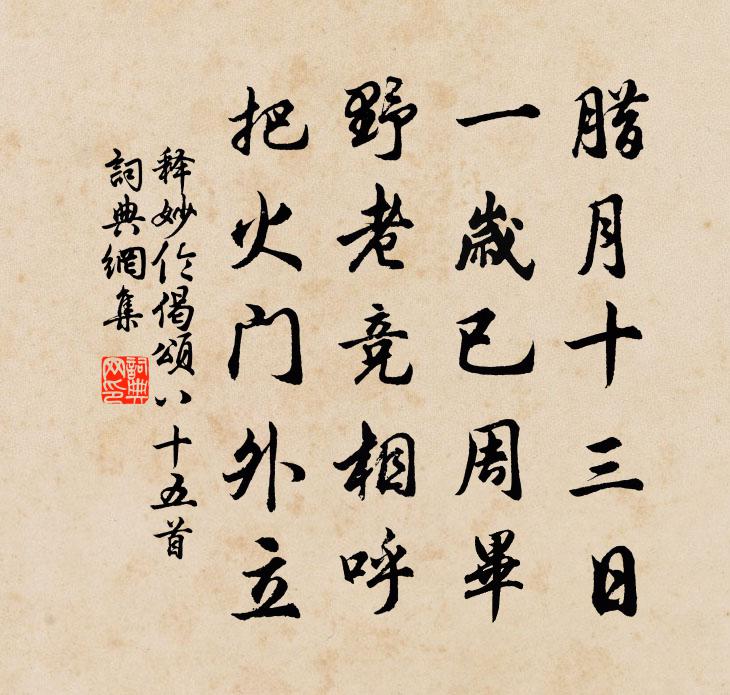 腊月十三日
一歲已周畢
野老竞相呼
把火门外立
释妙伦偈頌八十五首
詞典網集
詞典網印